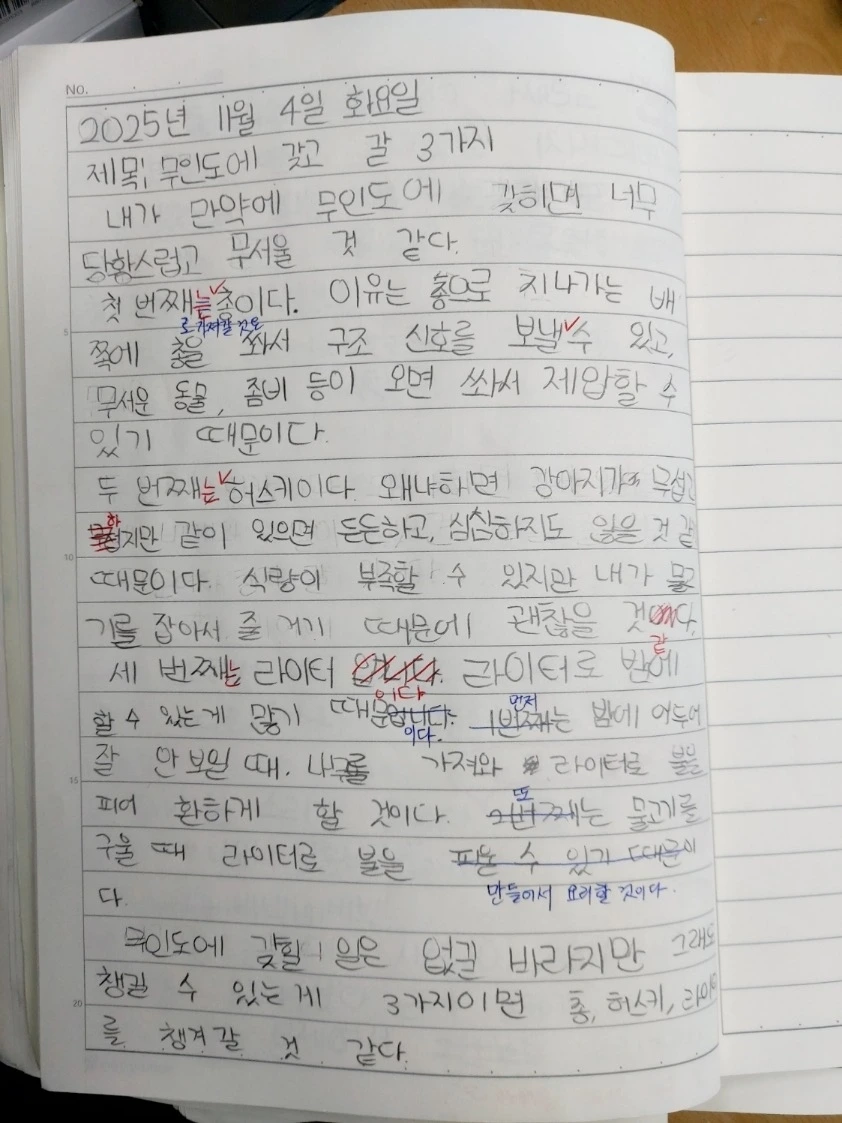 No.
2025년 11월 4일 화요일
제목; 무인도에 갖고 갈 3가지
내가 만약에 무인도에 갖히면 너무
당황스럽고 무서울 것 같다.
첫 번째는 총이다. 이유는 총으로 지나가는 배
로 가져갈 것은
쪽에 총을 쏴서 구조 신호를 보낼 수 있고,
무서운 동물, 좀비 등이 오면 쏴서 제압할 수
있기 때문이다.
두 번째는 허스키이다. 왜냐하면 강아지가 무섭긴
하지만 같이 있으면 든든하고, 심심하지도 않을 것 같
때문이다. 식량이 부족할 수 있지만 내가 물고
기를 잡아서 줄 거기 때문에 괜찮을 것 같다.
세 번째는 라이터이다. 라이터로 밤에
할 수 있는게 많기 때문이다. 먼저는 밤에 어두어
잘 안 보일 때, 나무를 가져와 라이터로 불을
피어 환하게 할 것이다. 또는 물고기를
구울 때 라이터로 불을 피울 수 있기 때문이
다. 만들어서 요리할 것이다.
무인도에 갖힐 일은 없길 바라지만 그래도
챙길 수 있는게 3가지이면 총, 허스키, 라이터
를 챙겨갈 것 같다.
5
10
15
20